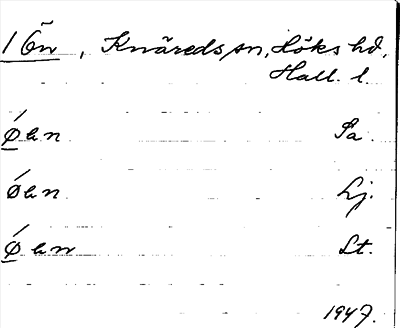 1 Ön, Knäreds sn, Höks hd,
Hall. l.
ǿen Pa.
ǿen Lj.
ǿen Lt.
1947.